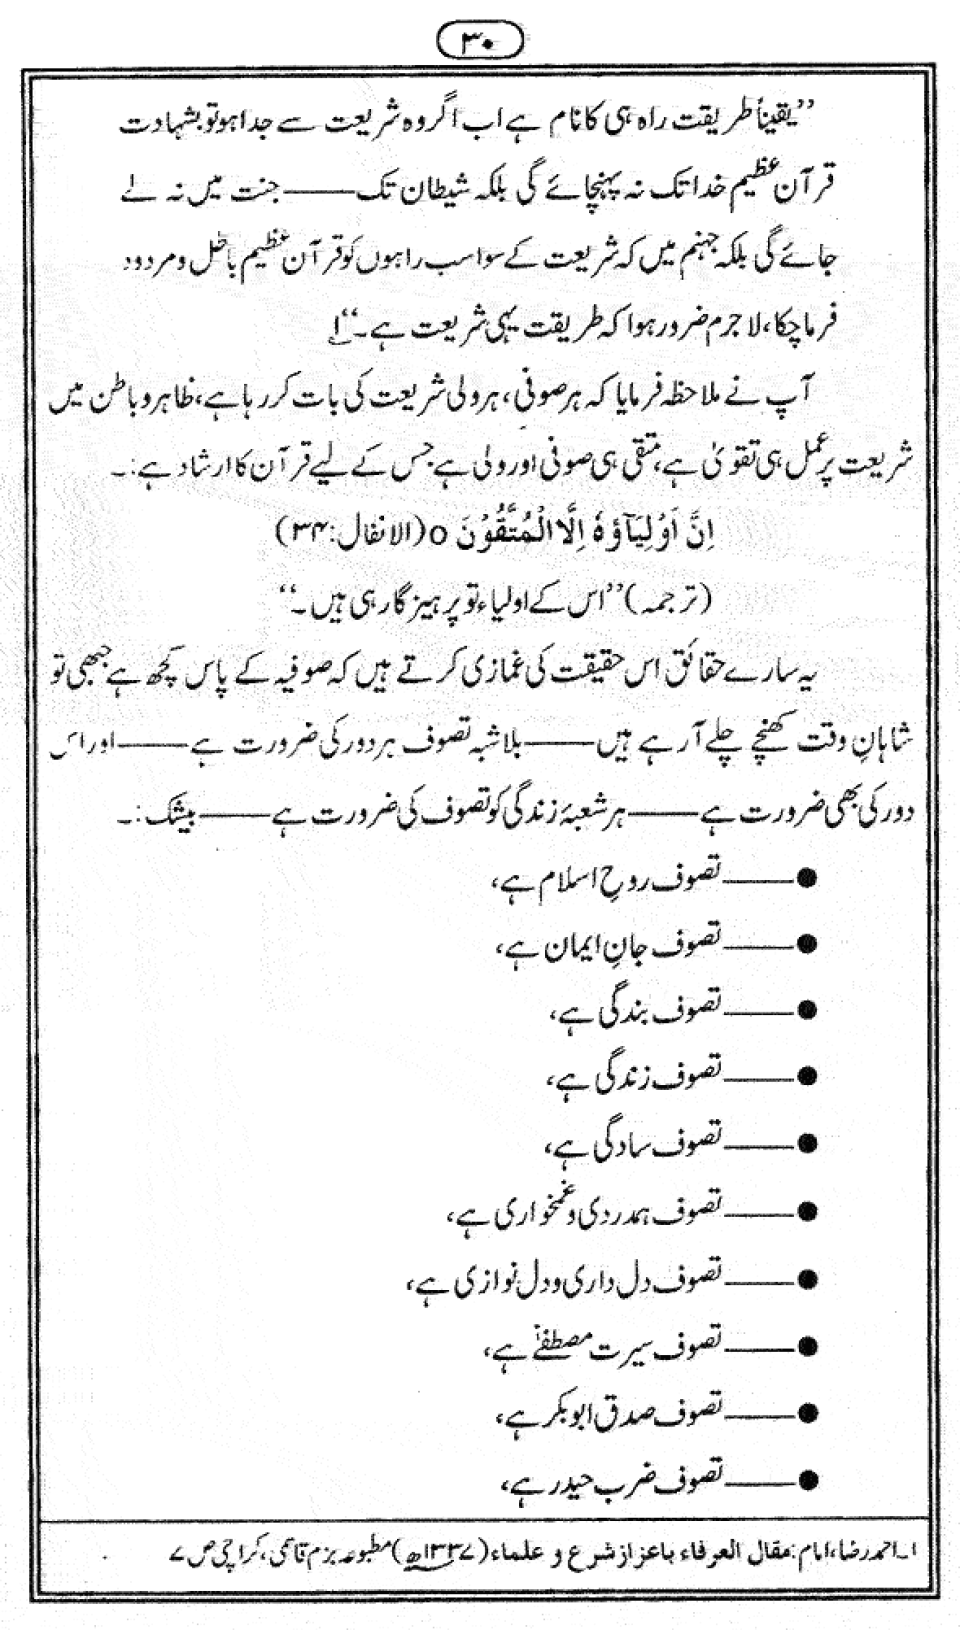 ۳۰
’’یقیناً طریقت راہ ہی کا نام ہے اب اگر وہ شریعت سے جدا ہو تو بشہادت
قرآن عظیم خدا تک نہ پہنچائے گی بلکہ شیطان تک——جنت میں نہ لے
جائے گی بلکہ جہنم میں کہ شریعت کے سوا سب راہوں کو قرآن عظیم باطل و مردود
فرما چکا، لاجرم ضرور ہوا کہ طریقت یہی شریعت ہے۔‘‘ ۱
آپ نے ملاحظہ فرمایا کہ ہر صوفی، ہر ولی شریعت کی بات کر رہا ہے، ظاہر و باطن میں
شریعت پر عمل ہی تقویٰ ہے، متقی ہی صوفی اور ولی ہے جس کے لیے قرآن کا ارشاد ہے:۔
اِنَّ اَوْلِیَآؤُہٗ اِلَّا الْمُتَّقُوْنَ o (الانفال: ۳۴)
(ترجمہ) ’’اس کے اولیاء تو پرہیز گار ہی ہیں۔‘‘
یہ سارے حقائق اس حقیقت کی غمازی کرتے ہیں کہ صوفیہ کے پاس کچھ ہے جبھی تو
شاہانِ وقت کھنچے چلے آ رہے ہیں——بلا شبہ تصوف ہر دور کی ضرورت ہے——اور اس
دور کی بھی ضرورت ہے——ہر شعبۂ زندگی کو تصوف کی ضرورت ہے——بیشک:۔
●——تصوف روحِ اسلام ہے،
●——تصوف جانِ ایمان ہے،
●——تصوف بندگی ہے،
●——تصوف زندگی ہے،
●——تصوف سادگی ہے،
●——تصوف ہمدردی و غمخواری ہے،
●——تصوف دل داری و دل نوازی ہے،
●——تصوف سیرت مصطفےٰ ہے،
●——تصوف صدق ابوبکر ہے،
●——تصوف ضرب حیدر ہے،
۱۔ احمد رضا، امام: مقال العرفاء باعزاز شرع و علماء (۱۳۲۷ھ) مطبوعہ بزم قاسمی، کراچی ص ۷